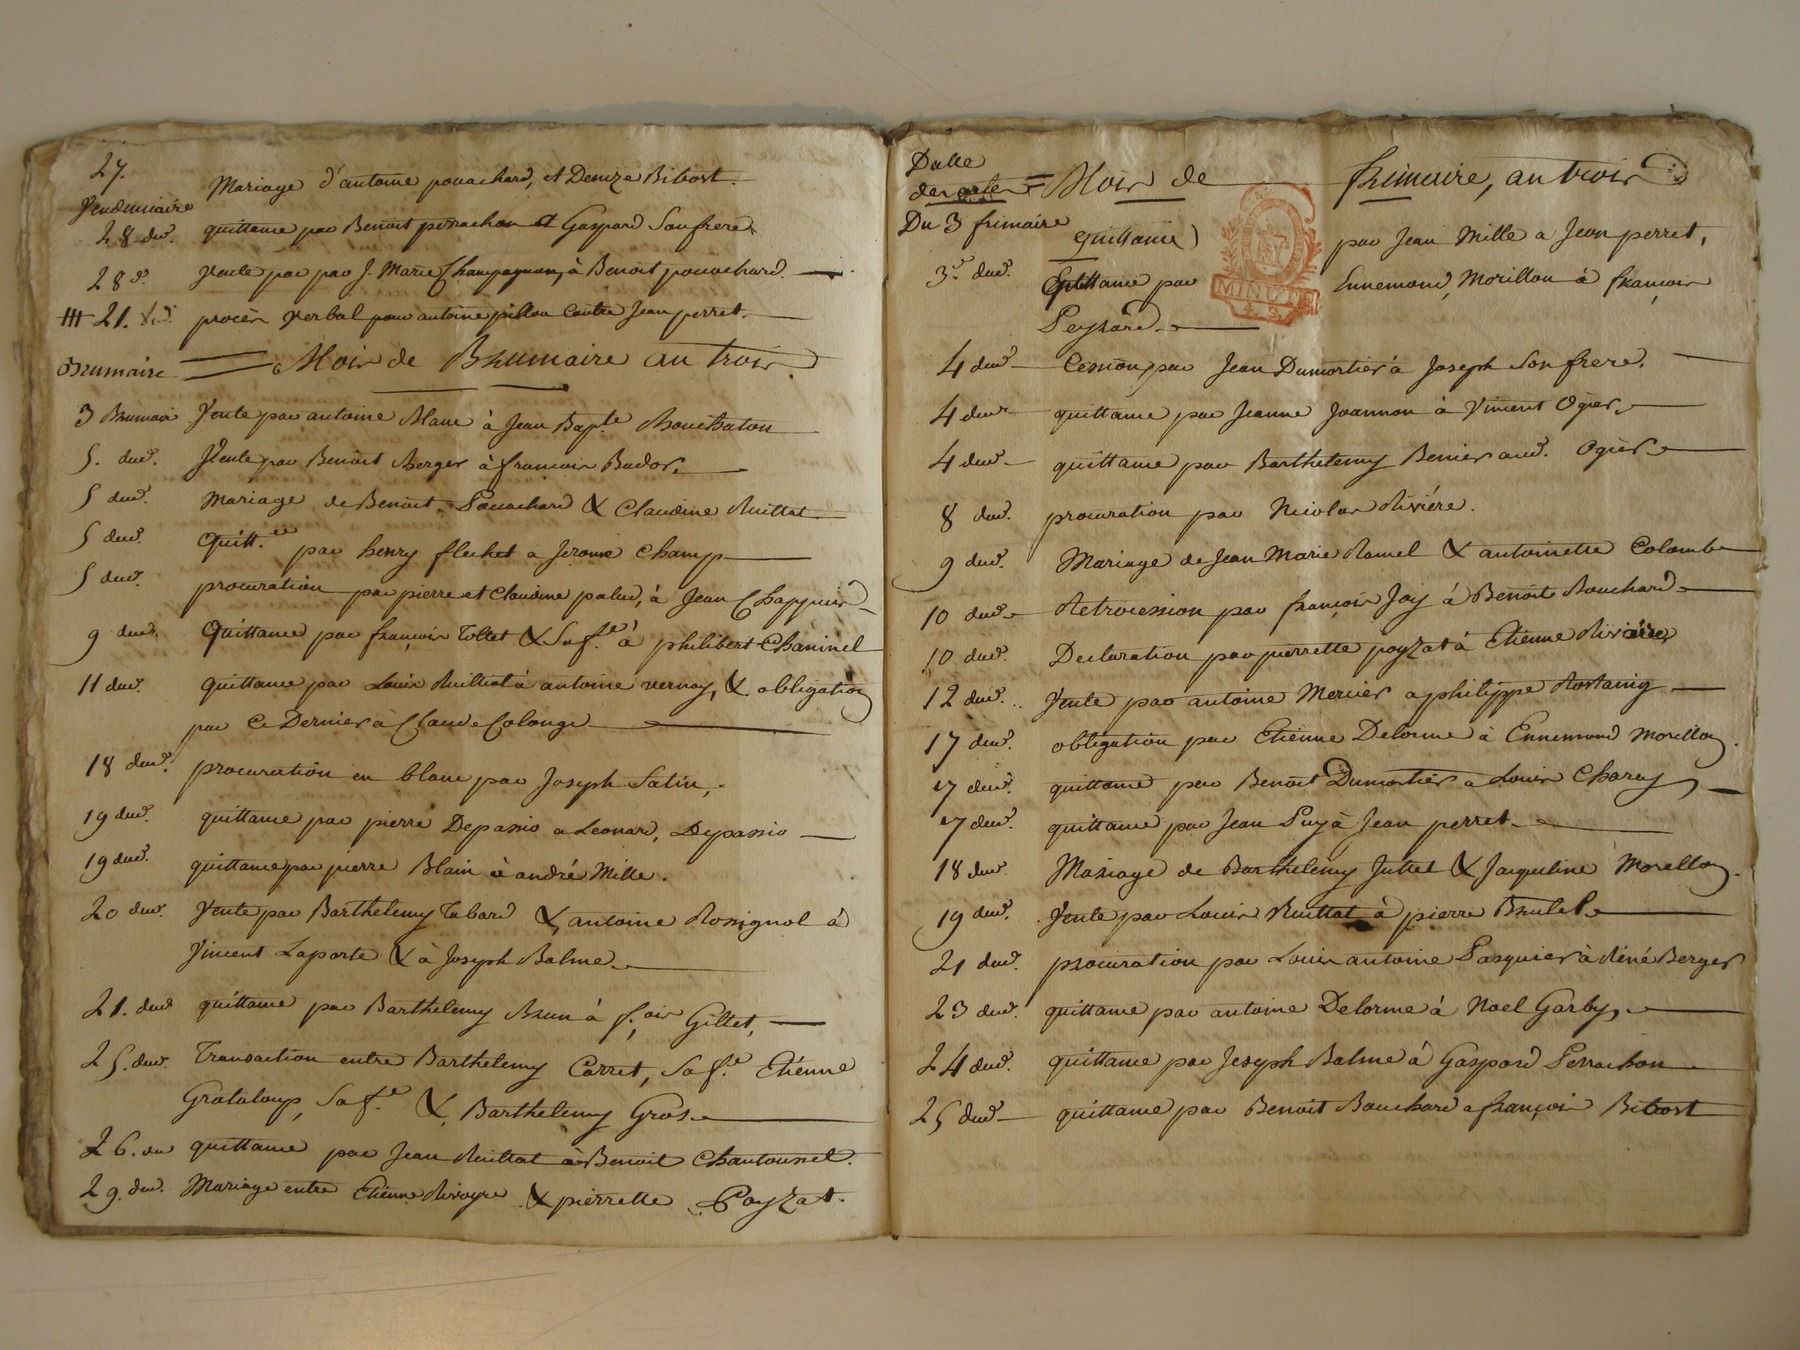 27. Vendemiaire Mariage d'antoine pouachard, et Denize Bibost.
28 dud. quittance par Benoit perrachon et Gaspard Son frere
28 d. Vente par par J. Marie Champagnon, à Benoit pouachard.
21. procès verbal pour antoine pillon Contre Jean perret.
Brumaire = Mois de Brumaire an trois
3 Brumair Vente par antoine Blanc à Jean Bapte
5. dud. Vente par Benoit Berger à francois Bador.
5 dud. Mariage de Benoit Pouachard & Claudine Ruittat
5 dud. Quitt.ce par henry flechet a Jerome Champ
5 dud. procuration par pierre et Claudine palud, à Jean Chappuis
9 dud. Quittance par françois Toltet & Sa f.e à philibert Chaninel
11 dud. quittance par Louis Ruittat à antoine vernay, & obligation
par Ce Dernier à Claude Colonge
18 dud. procuration en blanc par Joseph Satin,
19 dud. quittance par pierre Depassio a Leonard, Depassio
19 dud. quittance par pierre Blain à andré Mille.
20 dud. Vente par Barthelemy Tabard & antoine Rossignol à
Vincent Laporte & à Joseph Balme.
21. dud quittance par Barthelemy Brun à f.ois Gillet,
25. dud. Transaction entre Barthelemy Carret, Sa f.e Etienne
Grataloup, Sa f.e & Barthelemy Gros.
26. du quittance par Jean Ruittat à Benoit Chantounel.
29. dud. Mariage entre Etienne Rivoyre & pierrette Payzat.
Datte
des actes = Mois de frimaire, an trois
Du 3 frimaire quittance par Jean Mille a Jean perret,
MINUTE
3.e dud. Quittance par Ennemond, Morillon à françois
Peyzard.
4 dud Cession par Jean Dumortier à Joseph Son frere.
4 dud quittance par Jeanne Joannon à Vincent Ogier.
4 dud quittance par Barthelemy Benier aud. Ogier
8 dud. procuration par Nicolas Riviére.
9 dud. Mariage de Jean Marie Ramel & antoinette Colomb
10 dud Retrocession par françois Jay à Benoit Bouchard
10 dud. Declaration par pierrette payzat à Etienne Riviére
12 dud. Vente par antoine Mercier a philippe Rostaing
17 dud. obligation par Etienne Delorme à Ennemond Morillon.
17 dud. quittance par Benoit Dumortier a Louis Charey
17 dud. quittance par Jean Puy à Jean perret.
18 dud Mariage de Barthelemy Juttet & Jacqueline Morellon.
19 dud. Vente par Louis Ruittat à pierre Brulet
21 dud. procuration par Louis antoine Pasquier à Réné Berger
23 dud. quittance par antoine Delorme à Noel Garby.
24 dud. quittance par Joseph Balme à Gaspard Perrachon
25 dud quittance par Benoit Bouchard a françois Bibost